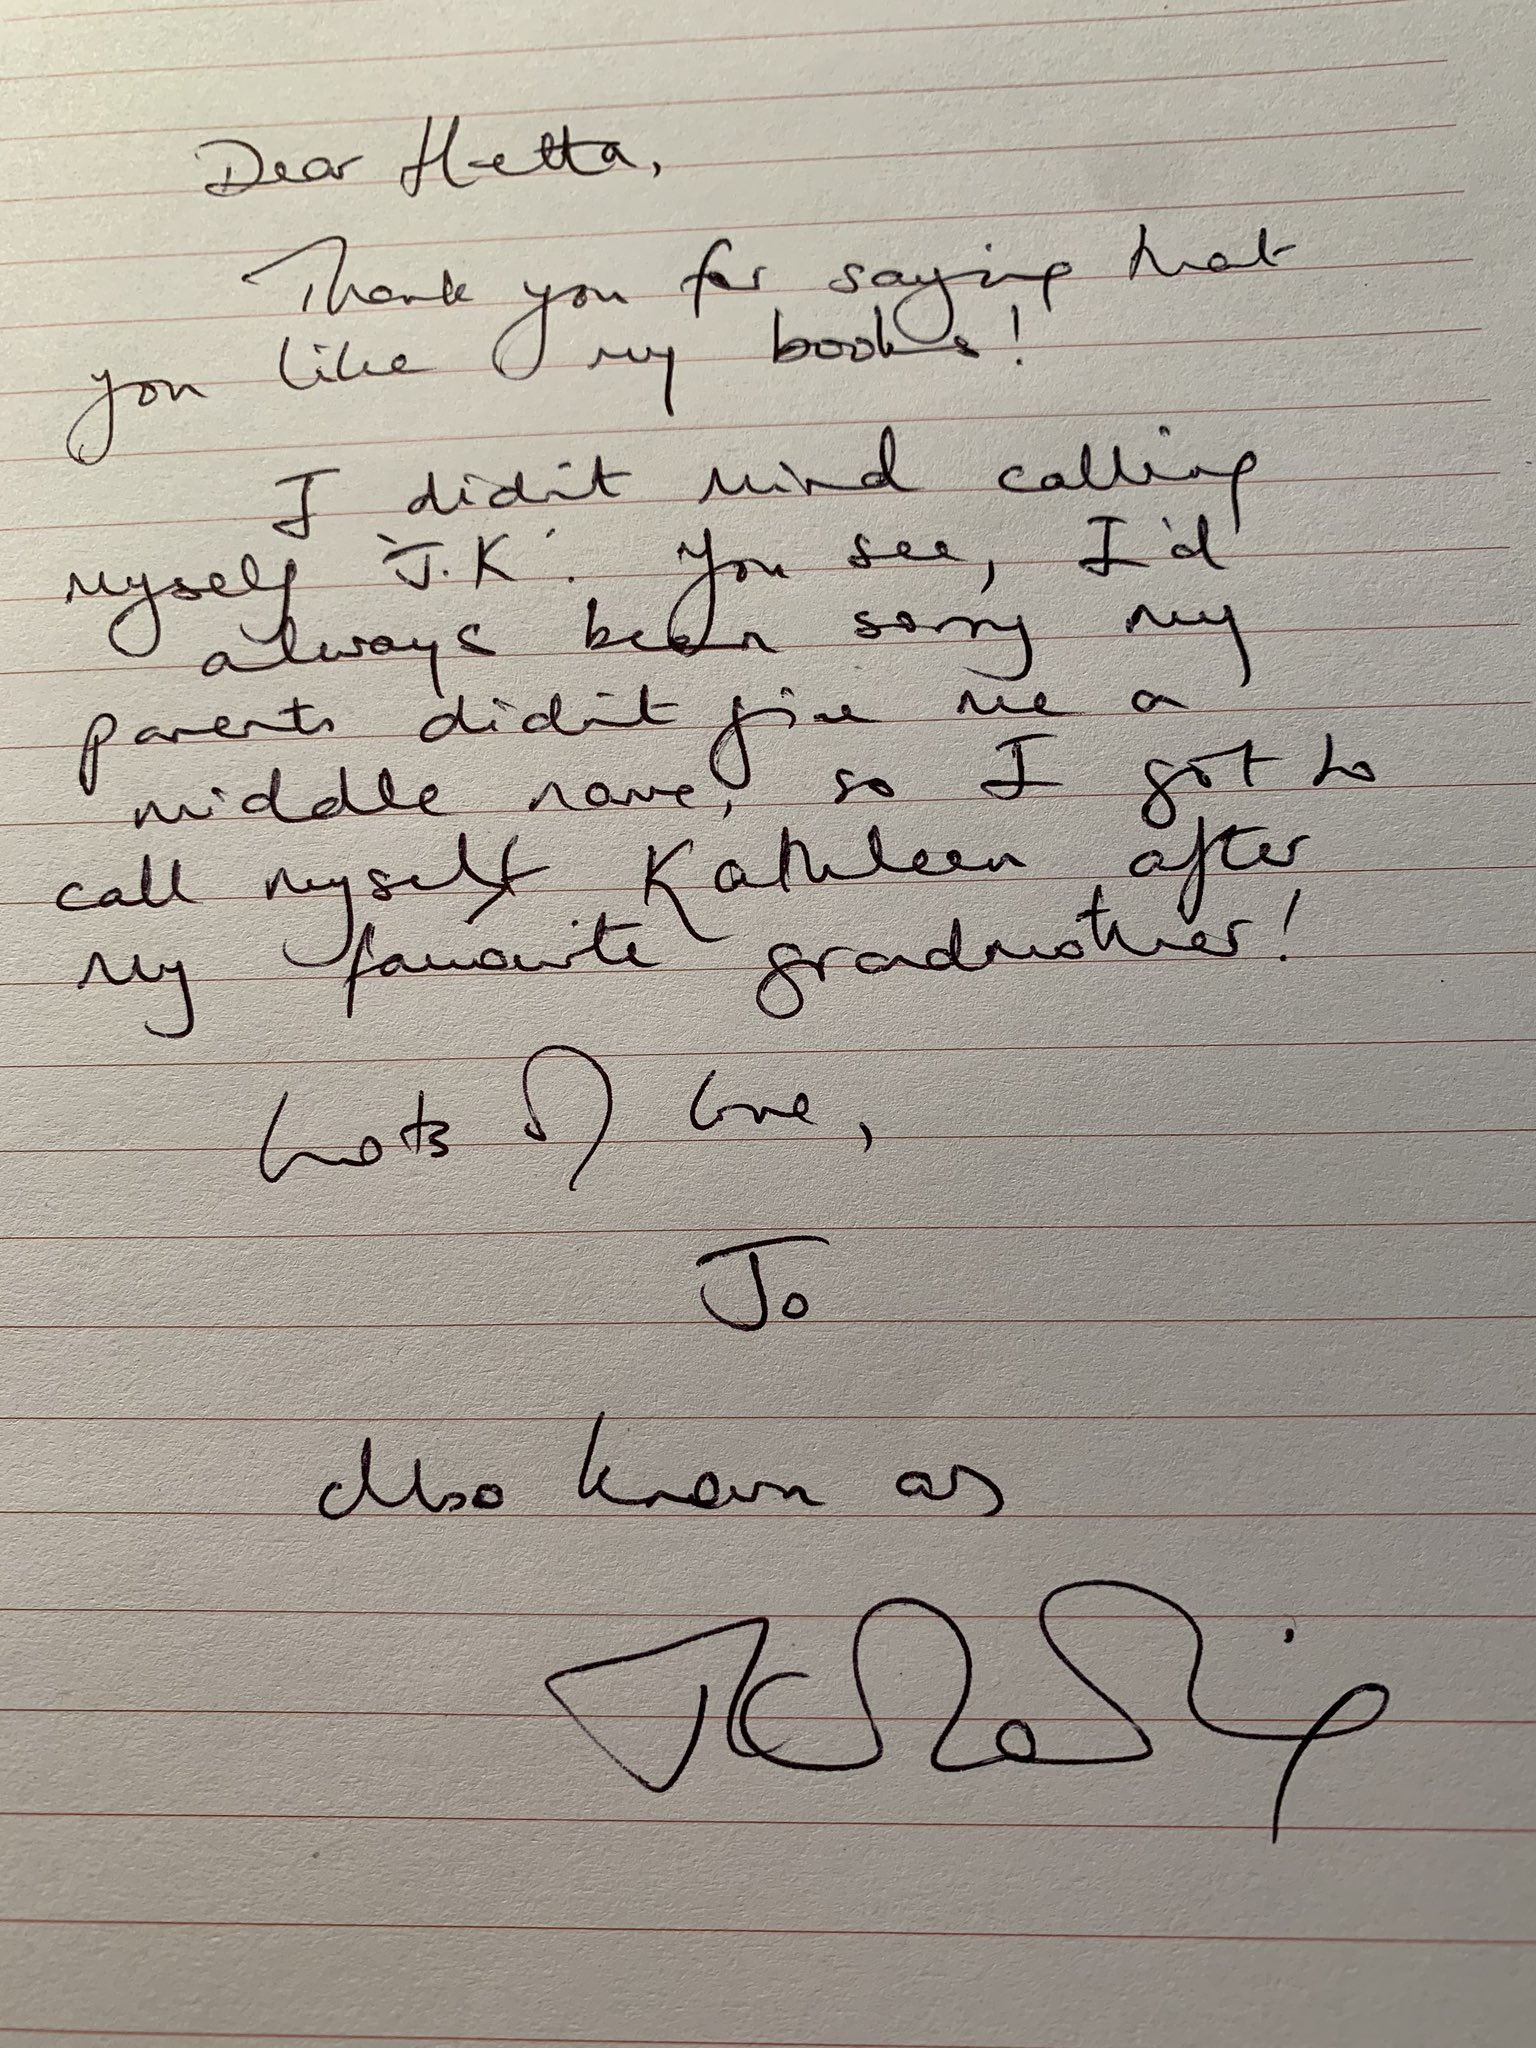 Dear Hetta,
Thank you for saying that
you like my books!
I didn't mind calling
myself 'J.K'. You see, I'd
always been sorry my
parents didn't give me a
middle name, so I got to
call myself Kathleen after
my favourite grandmother!
Lots of love,
Jo
Also known as
JKRowling